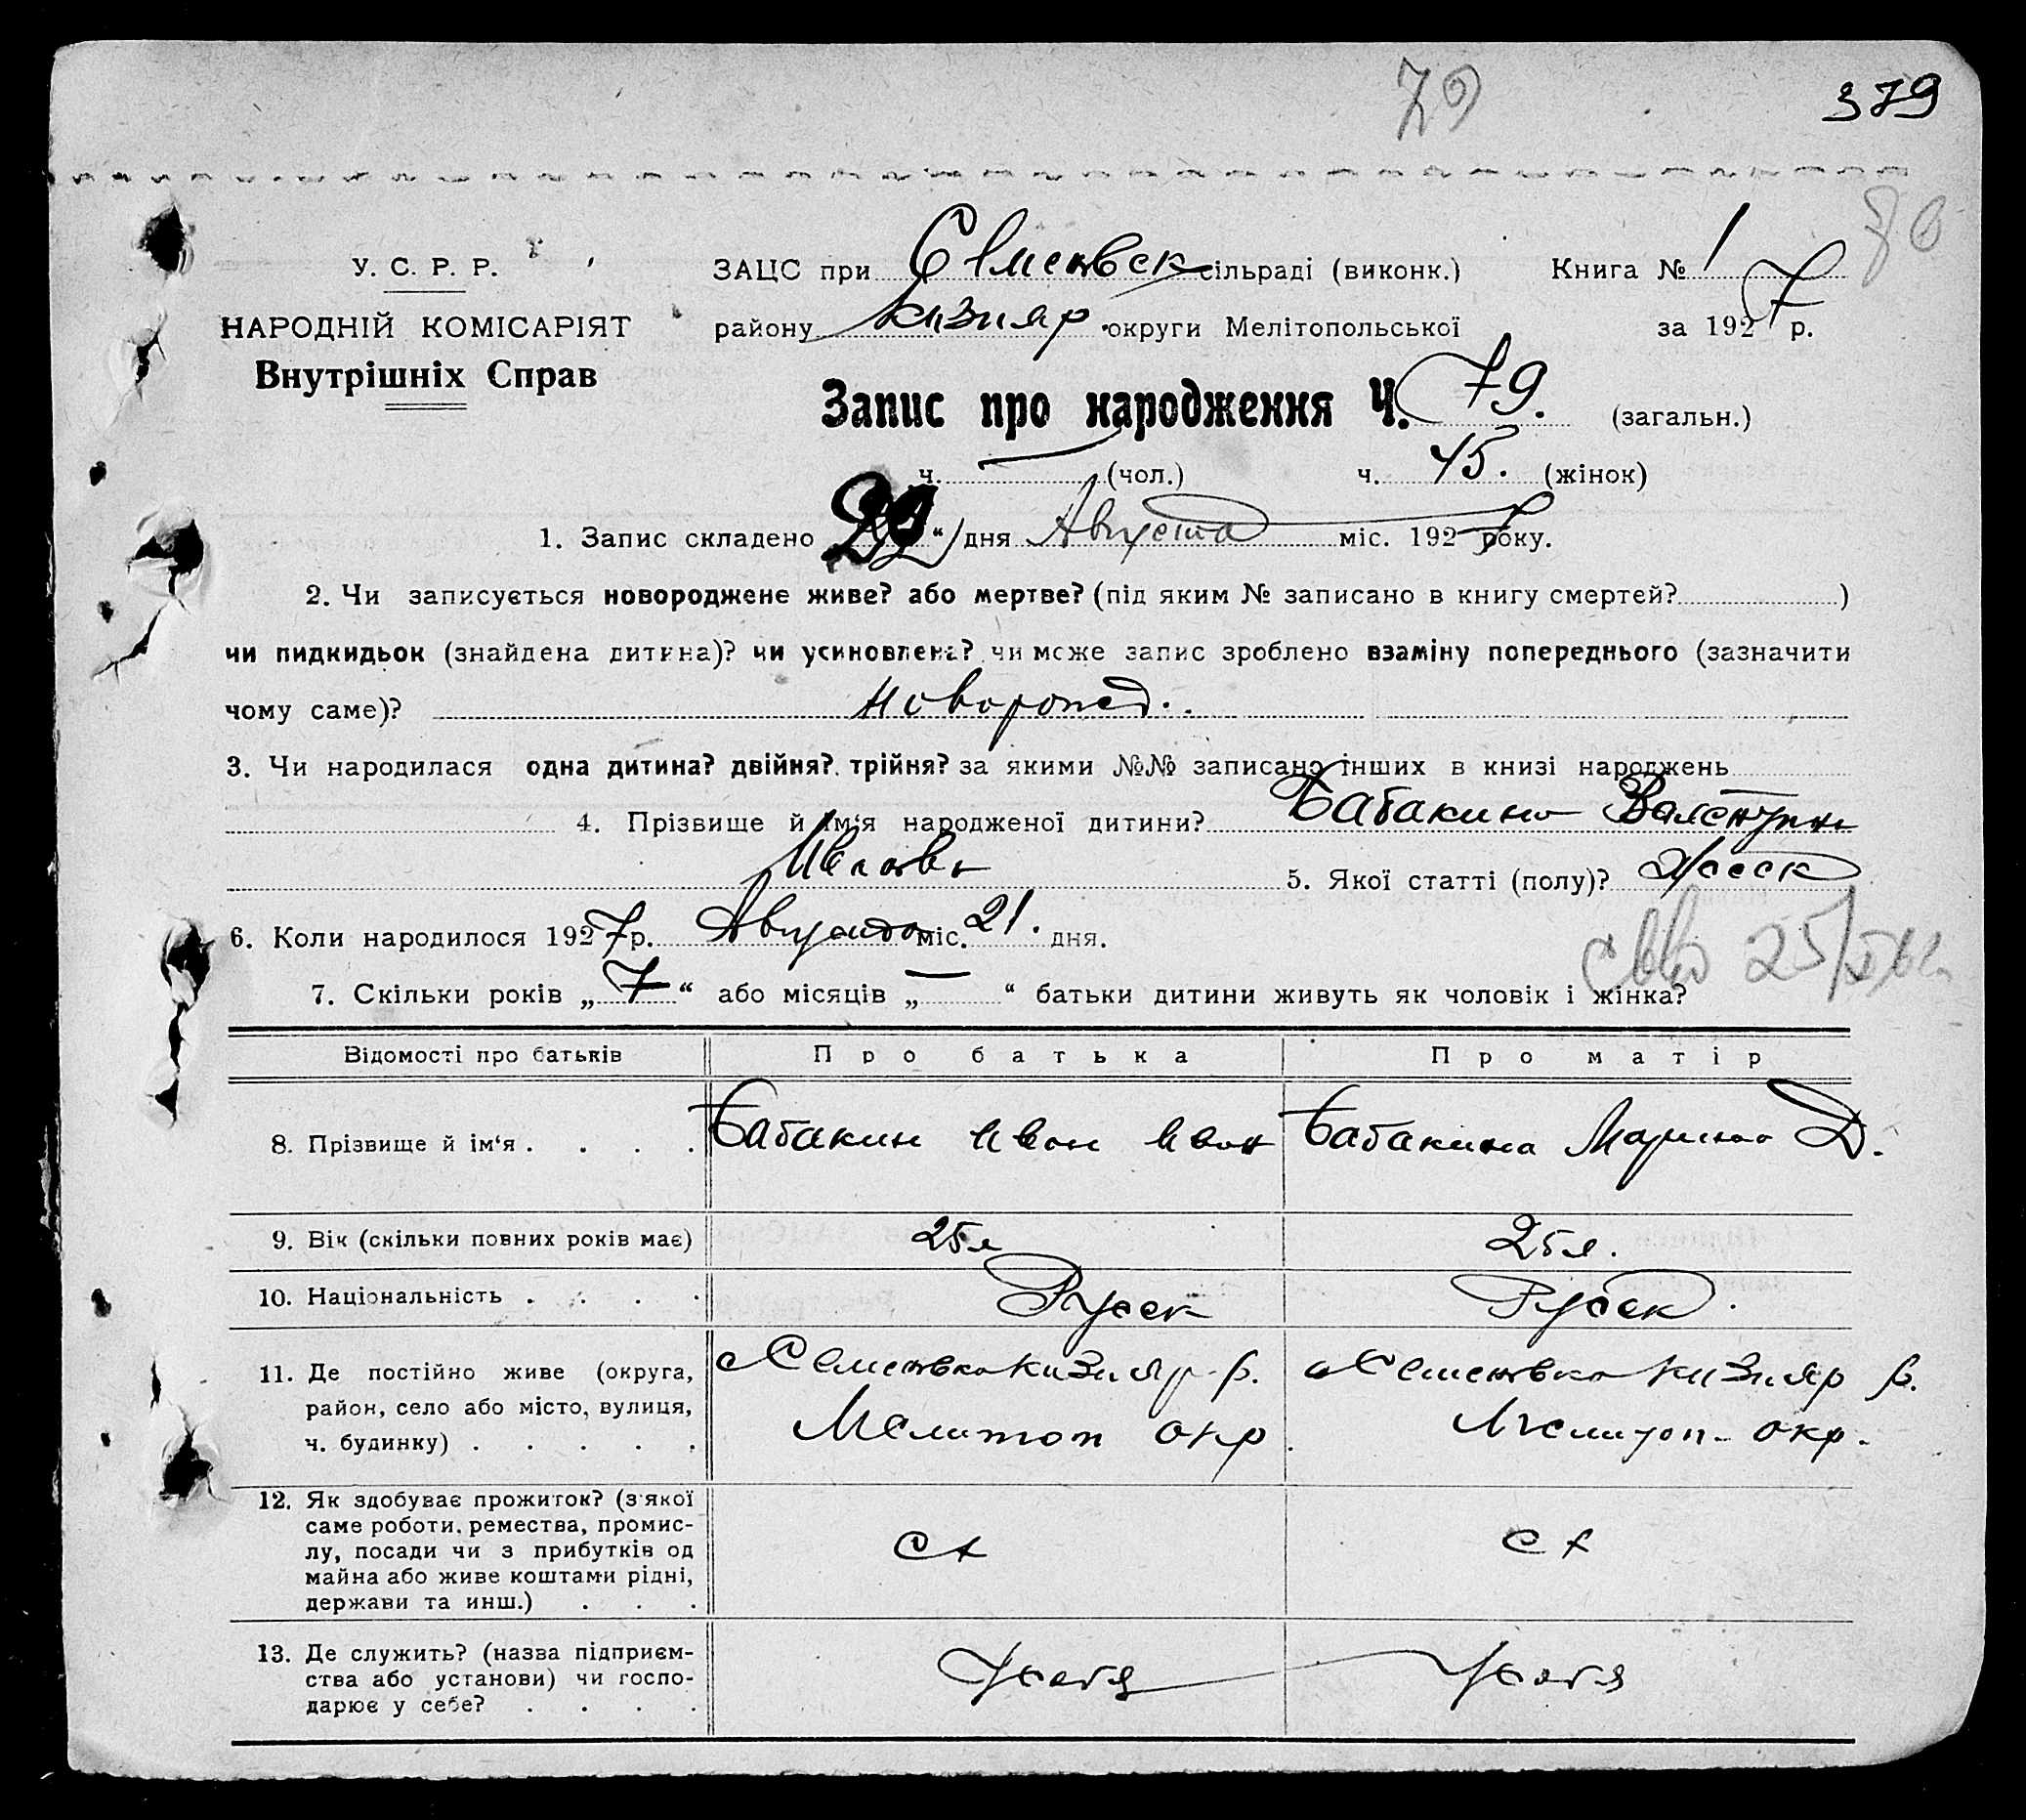 79
379
80
У. С. Р. Р.
НАРОДНІЙ КОМІСАРІЯТ
Внутрішніх Справ
ЗАЦС при сільраді (виконк.) Книга № 1
району Кизияр округи Мелітопольської за 1927 р.
Запис про народження Ч. 79. (загальн.)
ч. — (чол.) ч. 45. (жінок)
1. Запис складено “ дня Августа міс. 1927 року.
2. Чи записується новороджене живе? або мертве? (під яким № записано в книгу смертей? )
чи пидкидьок (знайдена дитина)? чи усиновлена? чи може запис зроблено взаміну попереднього (зазначити
чому саме)? Оворожд..
3. Чи народилася одна дитина? двійня? трійня? за якими №№ записано інших в книзі народжень —
4. Прізвище й ім‘я народженої дитини? Бабакина Валентин
5. Якої статті (полу)? Женск
6. Коли народилося 1927 р. Августа міс. 21. дня.
25/
7. Скільки років „7“ або місяців „—“ батьки дитини живуть як чоловік і жінка?
Відомості про батьків Про батька Про матір
8. Прізвище й ім‘я . . . . Бабакин Иван Иван Бабакина Марина Д.
9. Вік (скільки повних років має) 25 л 25 л.
10. Національність . . . . Русск Русск.
11. Де постійно живе (округа, с Семеновка Кизияр р. с Семеновка Кизияр р.
район, село або місто, вулиця, Мелитоп окр. Мелитоп. окр.
ч. будинку) . . . . .
12. Як здобуває прожиток? (з якої
саме роботи, ремества, промис-
лу, посади чи з прибутків од сх сх
майна або живе коштами рідні,
держави та инш.) . . .
13. Де служить? (назва підприєм-
ства або установи) чи госпо- У себя У себя
дарює у себе? . . . .